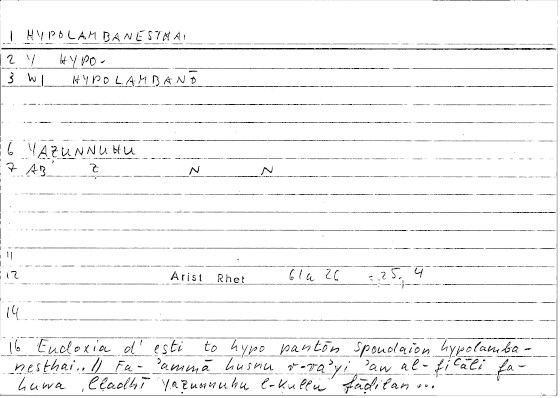 1 HYPOLAMBANESTHAI
2 Y HYPO-
3 WI HYPOLAMBANŌ
6 YAẒUNNUHU
7 AB Ẓ N N
11
12 Arist Rhet 61a 26 = 25, 4
14
16 Eudoxia d' esti to hypo pantōn spoudaion hypolamba-
nesthai.. // Fa-'ammā ḥusnu r-ra'yi 'aw al- fa-
huwa lladhī yaẓunnuhu l-kullu fāḍilan ...